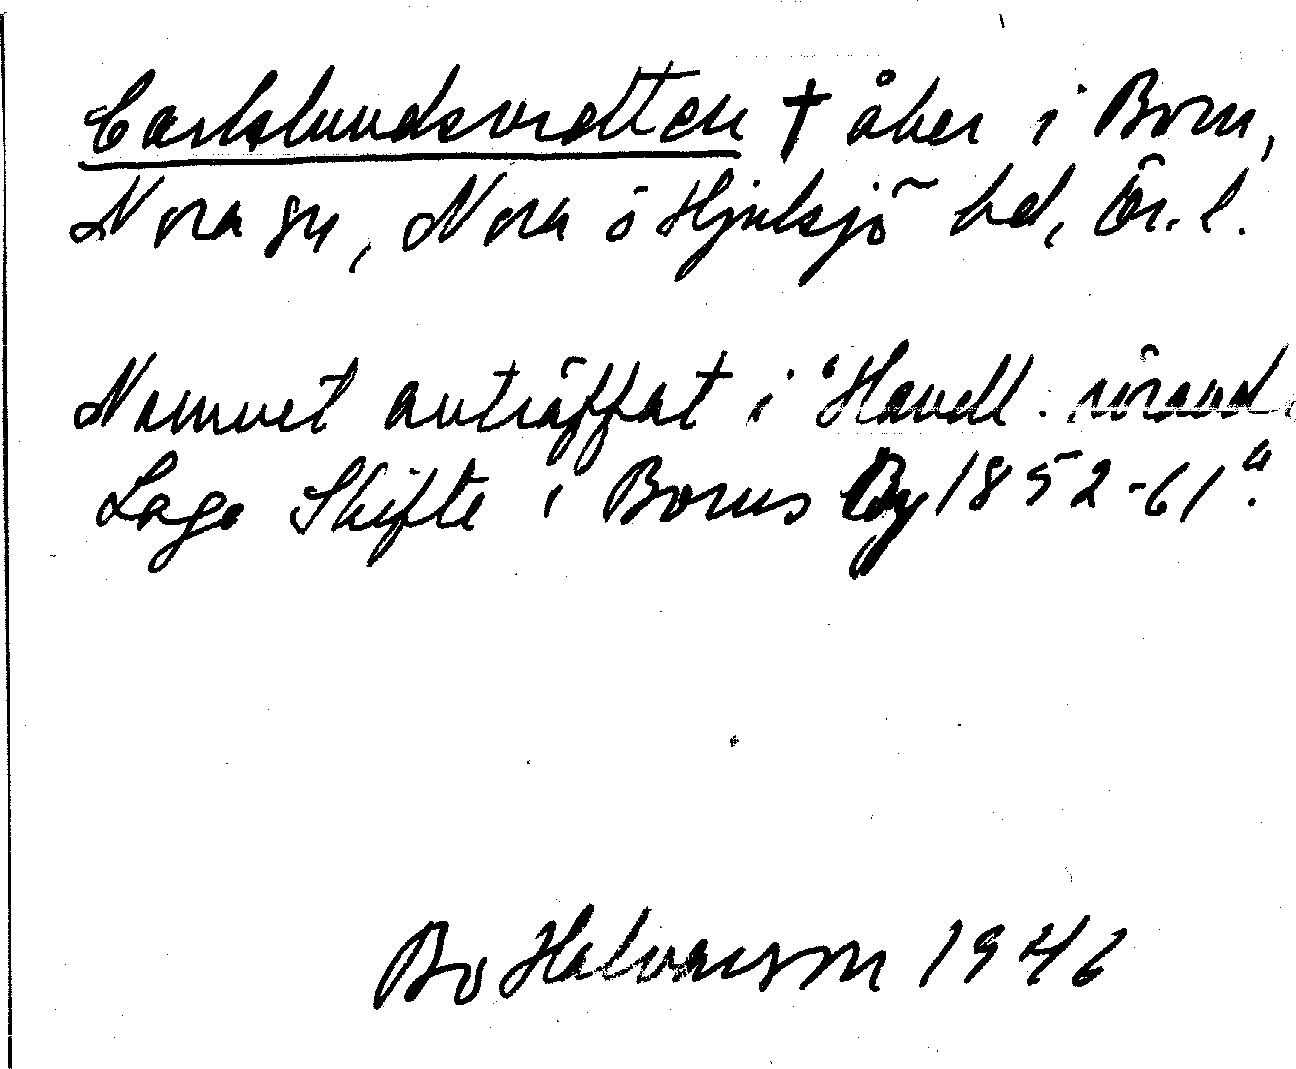 Carlslundsvretten † åker i Born,
Nora sn, Nora o Hjulsjö bd, Ör. l.
Namnet anträffat i "Handl. rörand.
Laga Skifte i Borns By 1852-61".
Bo Halvarson 1946